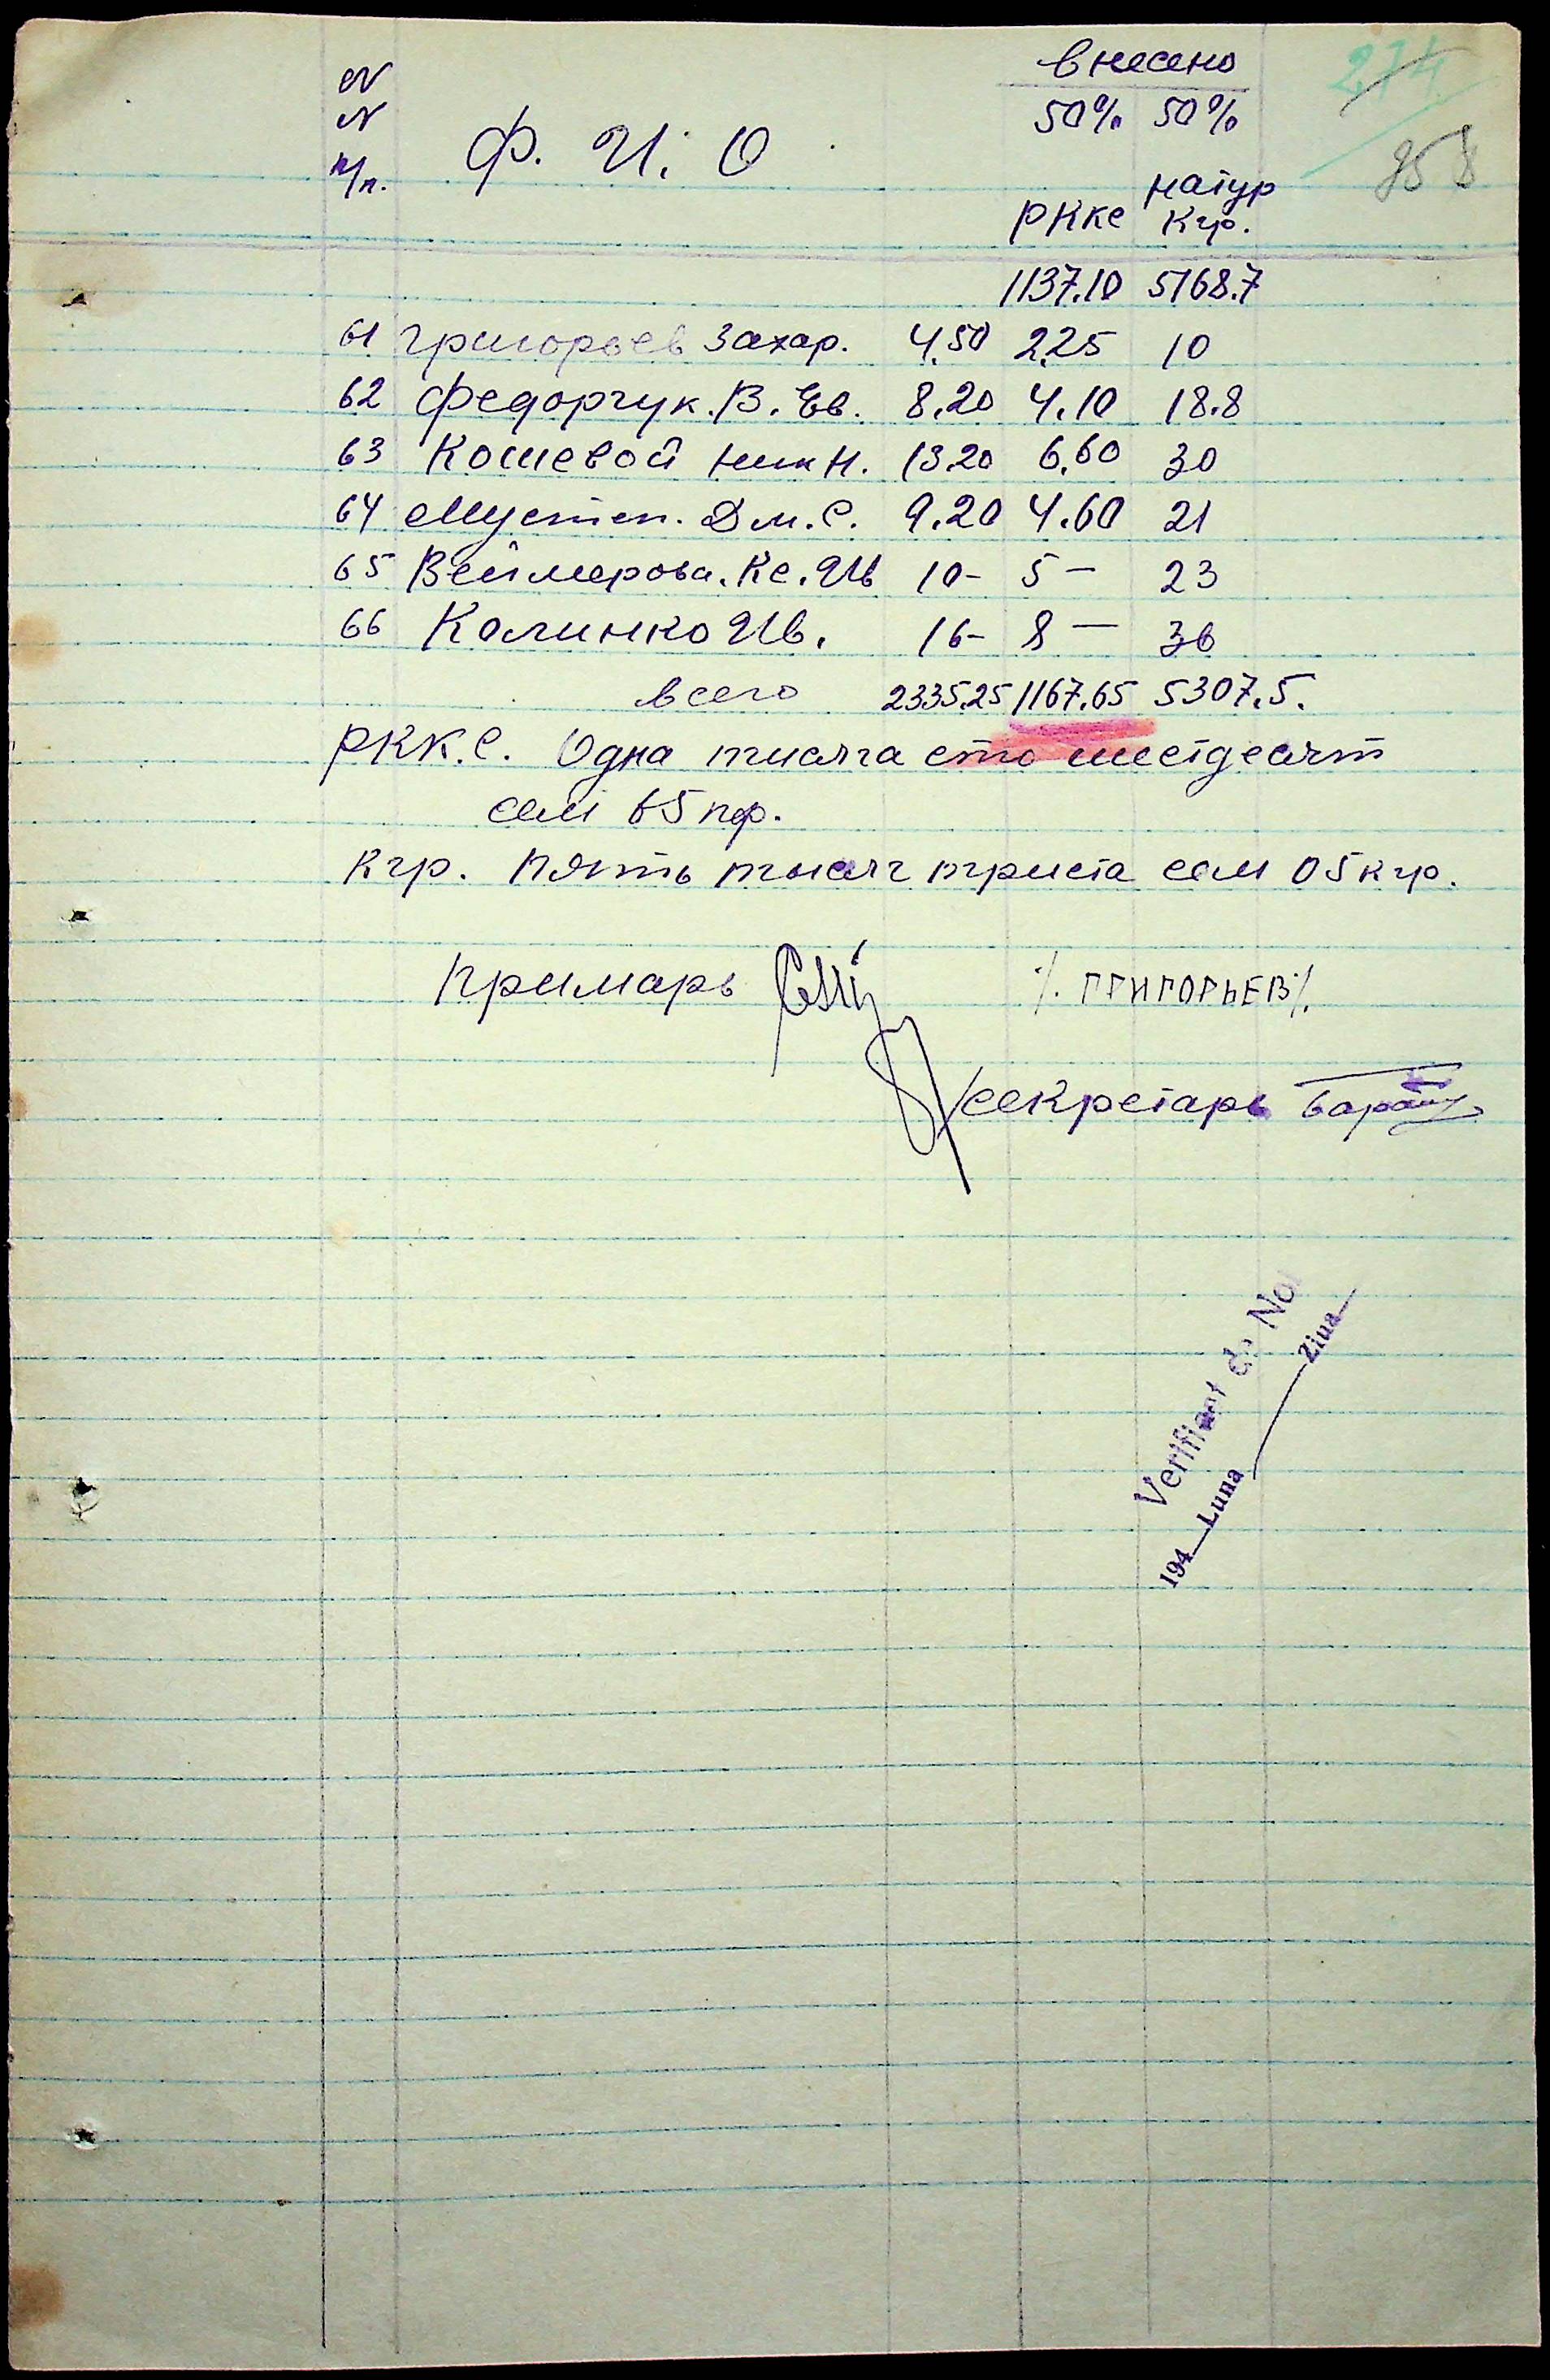 внесено
274
N
N
п/п.
Ф. И. О
50% 50%
РККС
натур
Кгр.
1137.10 5168.7
61 Григорьев Захар. 4.50 2.25 10
62 Федорчук. В. Ев. 8.20 4.10 18.8
63 Кошевой Ник Н. 13.20 6.60 30
64 Мустеп. Дм. С. 9.20 4.60 21
65 Веймерова. Кс. Ив 10- 5 — 23
66 Калинко Ив. 16- 8 — 36
всего 2335.25 1167.65 5307.5.
РКК.С. Одна тисяча сто шестдесят
сем 65 пф.
Кгр. Пять тысяч триста сем 05 кгр.
Примарь
/. ГРИГОРЬЕВ /.
Секретарь
Verificat de No
194 Luna Ziua